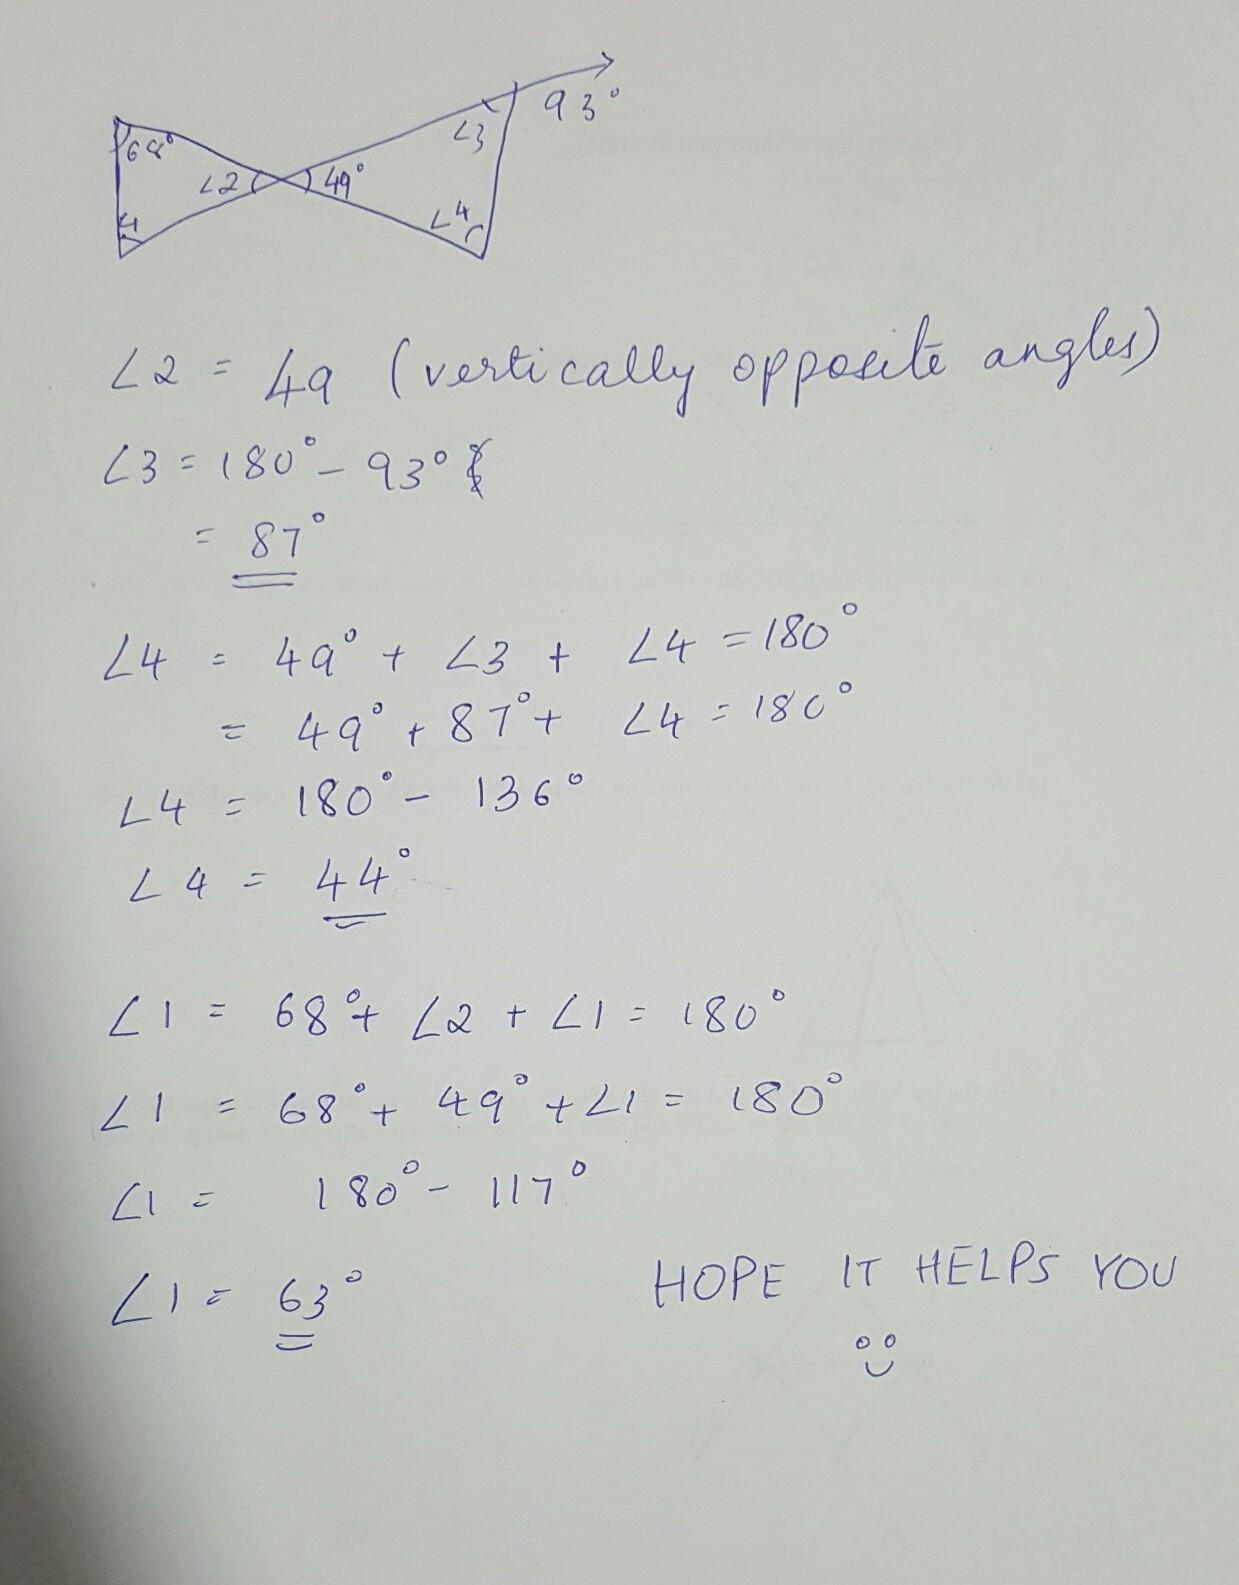 93°
68°
∠3
∠2
49°
∠4
∠1
∠2 = 49 (vertically opposite angles)
∠3 = 180° - 93°
= 87°
∠4 = 49° + ∠3 + ∠4 = 180°
= 49° + 87° + ∠4 = 180°
∠4 = 180° - 136°
∠4 = 44°
∠1 = 68° + ∠2 + ∠1 = 180°
∠1 = 68° + 49° + ∠1 = 180°
∠1 = 180° - 117°
∠1 = 63°
HOPE IT HELPS YOU